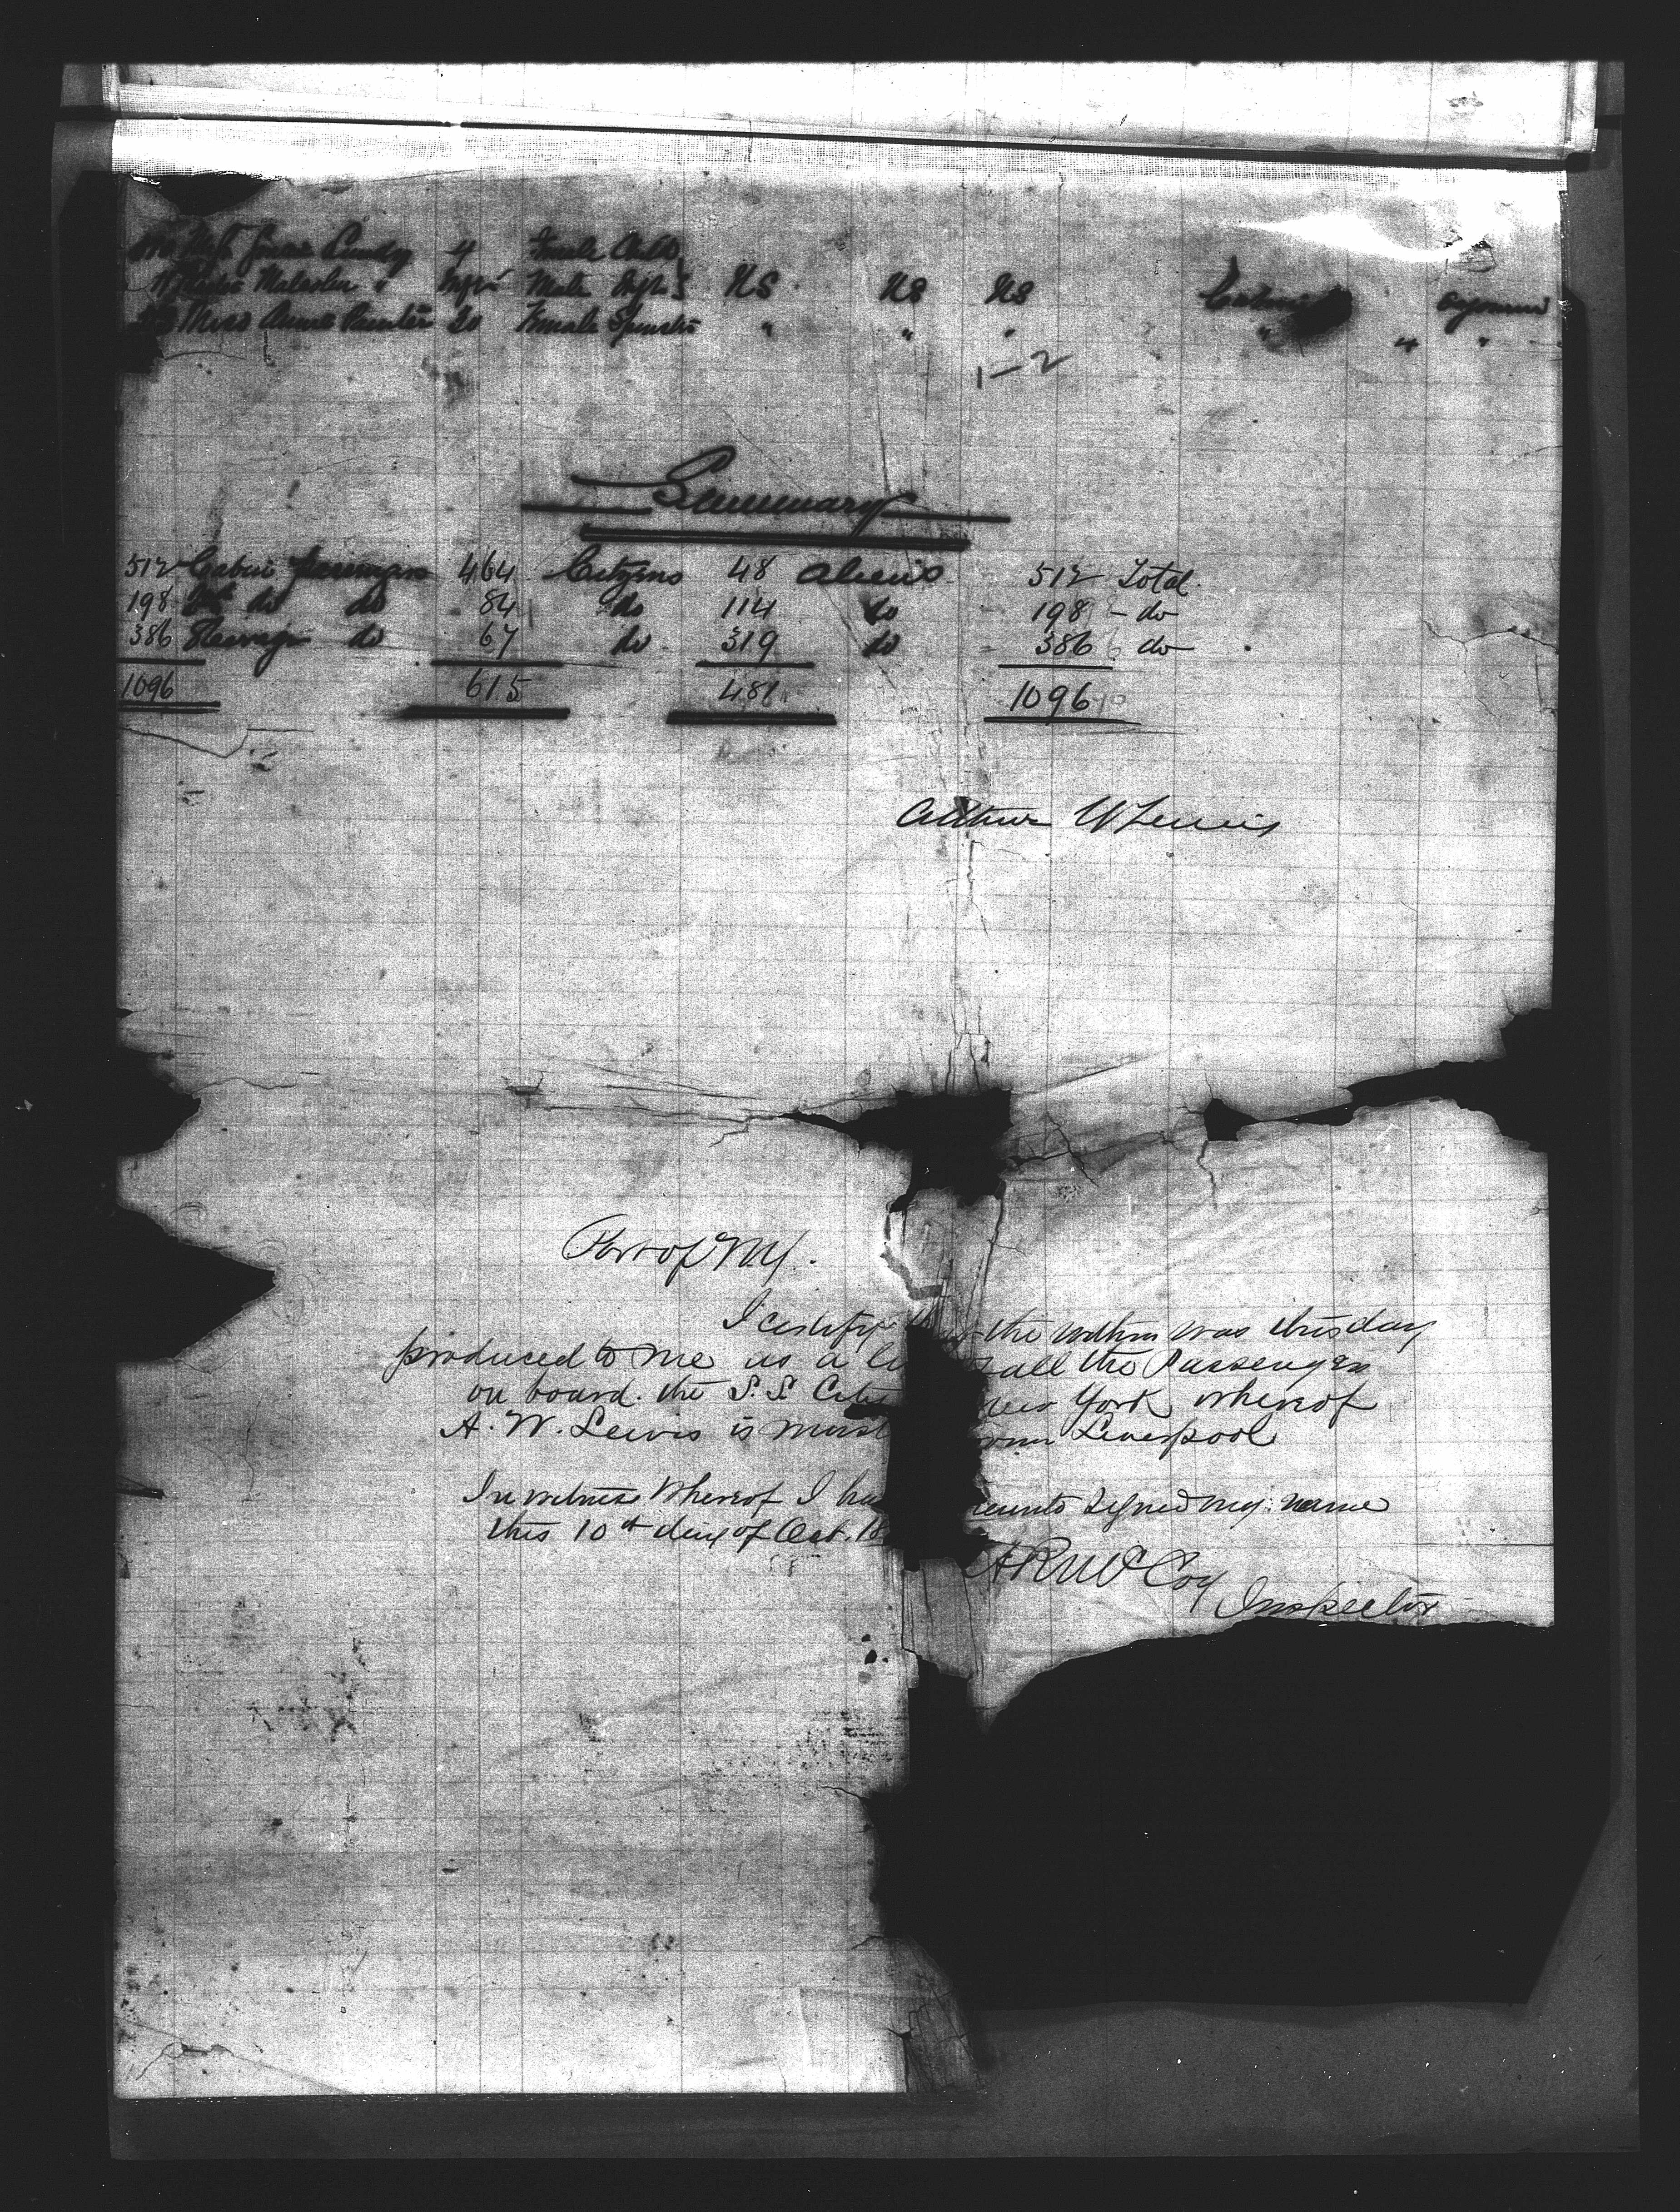 4 Female Child
Malcolm Inft Male Inft } US US US
Miss Annie Painter 20 Female Spinster " " " " " "
1—2
Summary
512 Cabin Passengers 464 Citizens 48 Aliens 512 Total
198 2nd do do 84 do 114 do 198 - do
386 Steerage do 67 do 319 do 386 do
1096 615 481 1096
Arthur W Lewis
Port of N.Y.
I certify the within was this day
produced to me as a li all the Passengers
on board the S.S. City New York whereof
A. W. Lewis is Mast from Liverpool
In witness whereof I ha eunto signed my name
this 10th day of Oct. 18
A R McCoy
Inspector